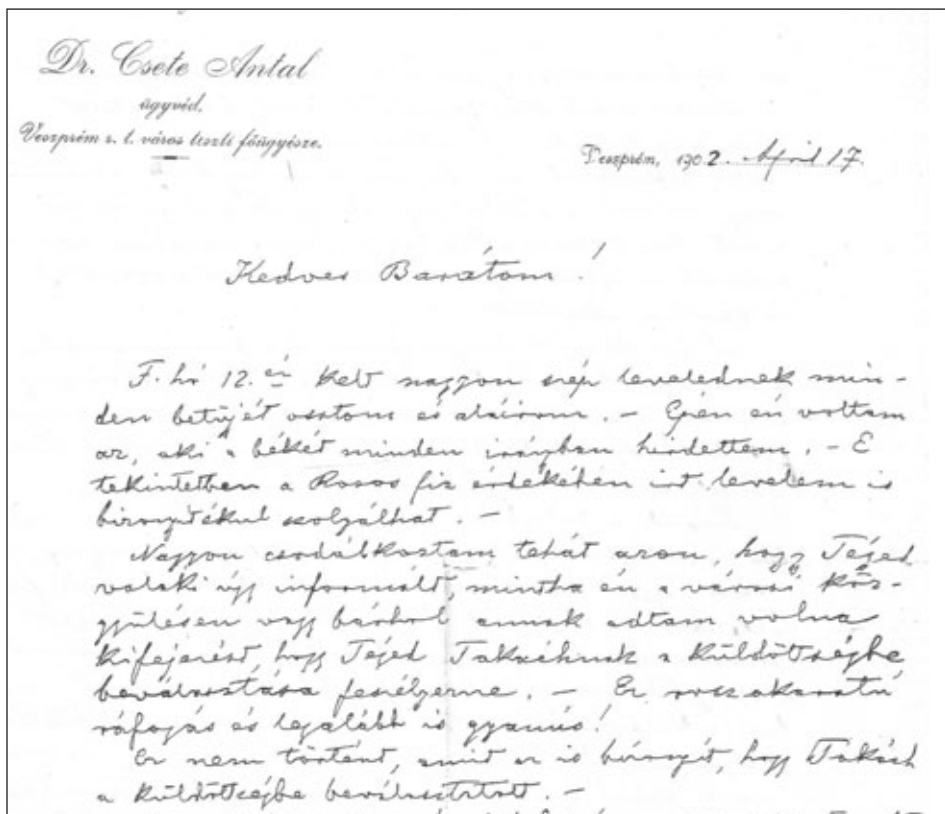 Dr. Csete Antal
ügyvéd,
Veszprém r. t. város tiszti főügyésze.
Veszprém, 1902. April 17.
Kedves Barátom!
F. hó 12.én kelt nagyon szép levelednek min-
den betüjét osztom és aláirom. – Épen én voltam
az, aki a békét minden irányban hirdettem. – E
tekintetben a Rosos fiz érdekében irt levelem is
bizonyitékul szolgálhat. –
Nagyon csodálkoztam tehát azon, hogy Téged
valaki úgy informált, mintha én a városi köz-
gyülésen vagy bárhol annak adtam volna
kifejezést, hogy Téged Takáchnak a küldöttségbe
beválasztása feszélyezne. – Ez rosszakaratú
ráfogás és legalább is gyanús!
Ez nem történt, amit az is bizonyit, hogy Takách
a küldöttségbe beválasztatott. –